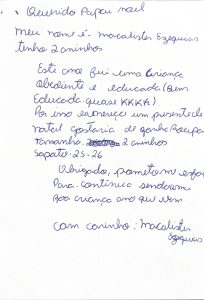 Querido Papai noel
meu nome é macalister Ezequias
tenho 2 aninhos
Este ano fui uma criança
Obediente e educada (bem
Educada quase KKKK)
Por isso mereço um presente de
natal gostaria de ganha Roupa
tamanho 2 aninhos
Sapato: 25-26
Obrigado, prometo me esfo
Para continua sendo uma
Boa criança ano que vem
com carinho: Macalister
Ezequias